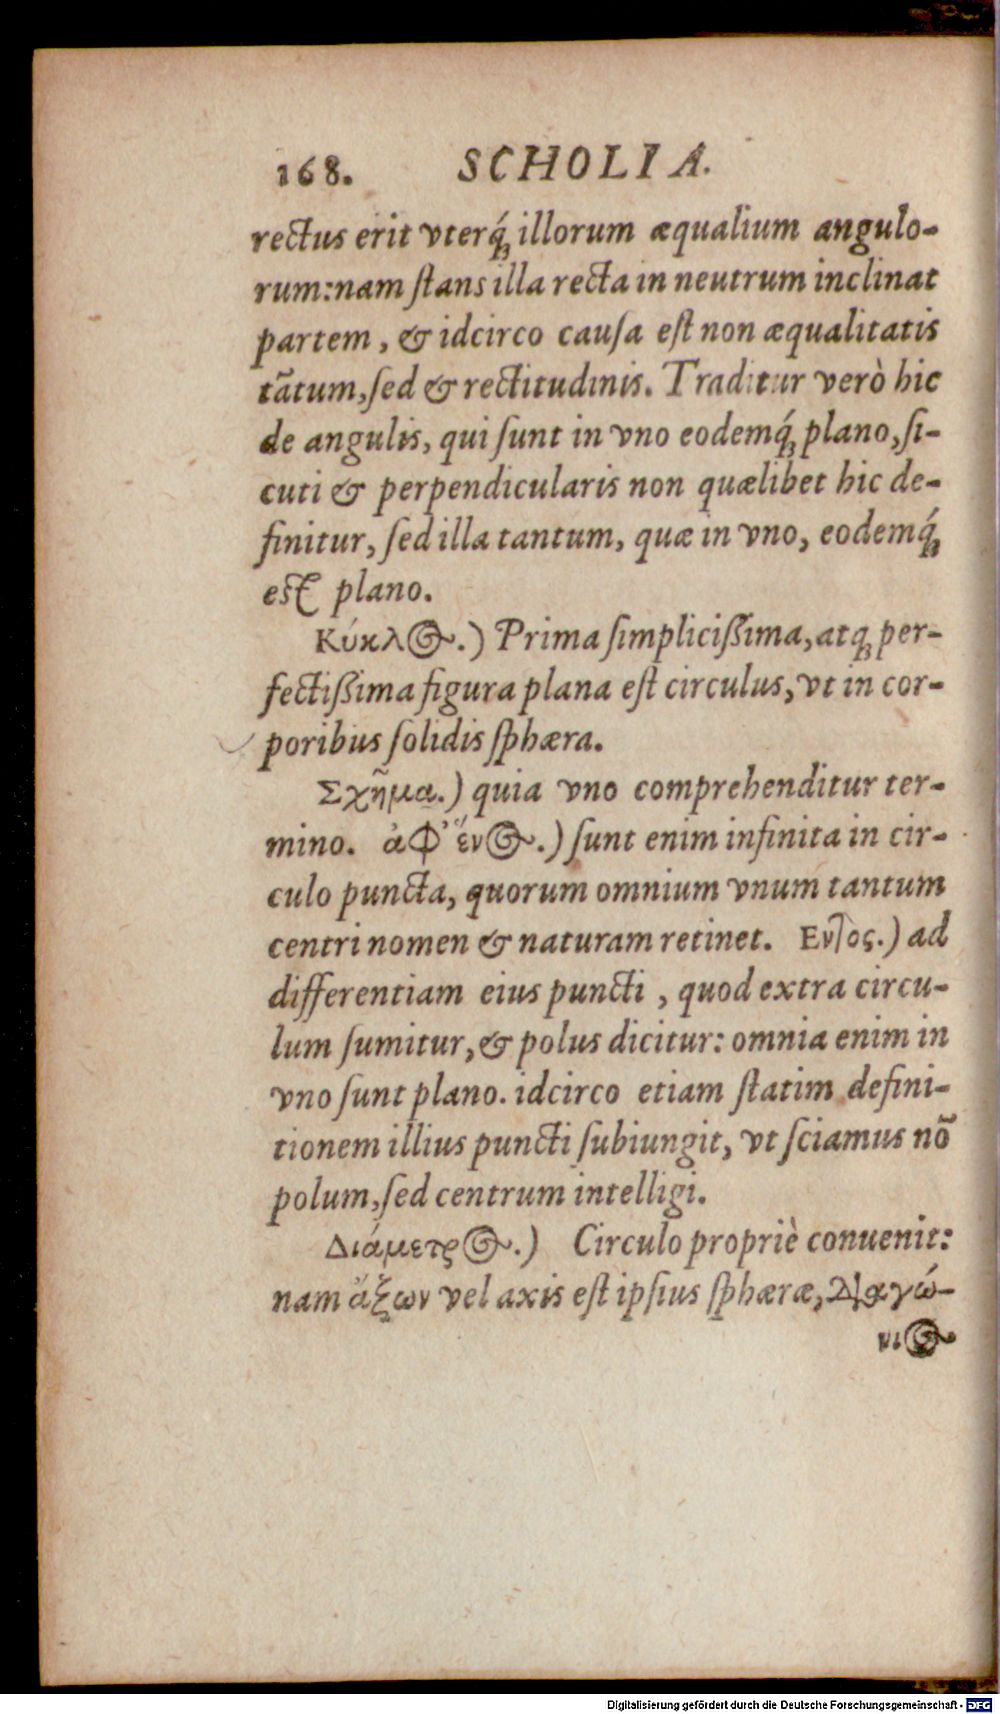 168. SCHOLIA.
rectus erit vterq́ꝫ illorum æqualium angulo-
rum: nam ſtans illa recta in neutrum inclinat
partem, & idcirco cauſa eſt non æqualitatis
tãtum, ſed & rectitudinis. Traditur verò hic
de angulis, qui ſunt in vno eodemq́ꝫ plano, ſi-
cuti & perpendicularis non quælibet hic de-
finitur, ſed illa tantum, quæ in vno, eodemq́ꝫ
eſt plano.
Κύκλος.) Prima ſimpliciſſima, atqꝫ per-
fectiſſima figura plana eſt circulus, vt in cor-
poribus ſolidis ſphæra.
Σχῆμα.) quia vno comprehenditur ter-
mino. ἀφ᾽ ἕνος.) ſunt enim infinita in cir-
culo puncta, quorum omnium vnum tantum
centri nomen & naturam retinet. Εντος.) ad
differentiam eius puncti, quod extra circu-
lum ſumitur, & polus dicitur: omnia enim in
vno ſunt plano. idcirco etiam ſtatim defini-
tionem illius puncti ſubiungit, vt ſciamus nõ
polum, ſed centrum intelligi.
Διάμετρος.) Circulo propriè conuenit:
nam ἄξων vel axis eſt ipſius ſphæræ, διαγώ-
νιος
Digitalisierung gefördert durch die Deutsche Forschungsgemeinschaft - DFG